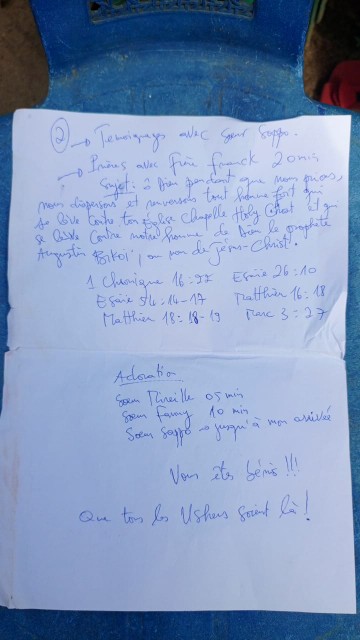 ② → Temoignages avec Sœur Sappo.
→ Prières avec frère franck 20 min
Sujet : ô Dieu pendant que nous prions,
nous dispersons et renversons tout homme fort qui
se lève contre ton Eglise Chapelle Holy Ghost et qui
se lève contre notre homme de Dieu le prophète
Augustin, au nom de Jésus-Christ.
1 Chronique 16:27 Esaïe 26:10
Esaïe 54:14-17 Matthieu 16:18
Matthieu 18:18-19 Marc 3:27
Adoration
Sœur Mireille 05 min
Sœur Fanny 10 min
Sœur Sappo → jusqu'à mon arrivée
Vous êtes bénis !!!
Que tous les Ushers soient là !